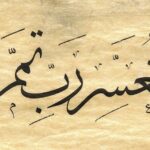 تعسر رب تمم